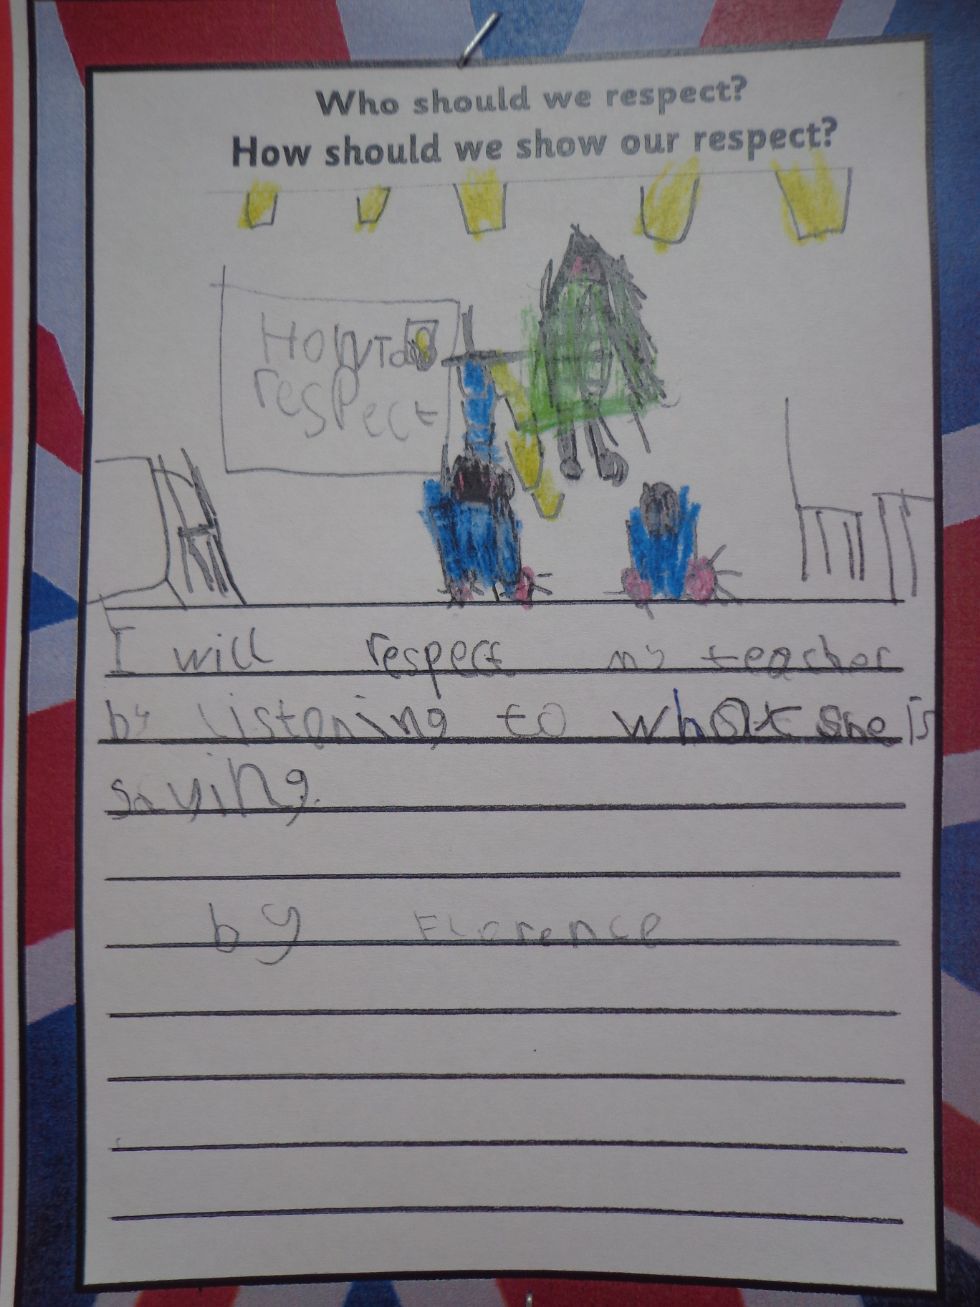 Who should we respect?
How should we show our respect?
How To
respect
I will respect my teacher
by listoning to what she is
saying.
by Florence